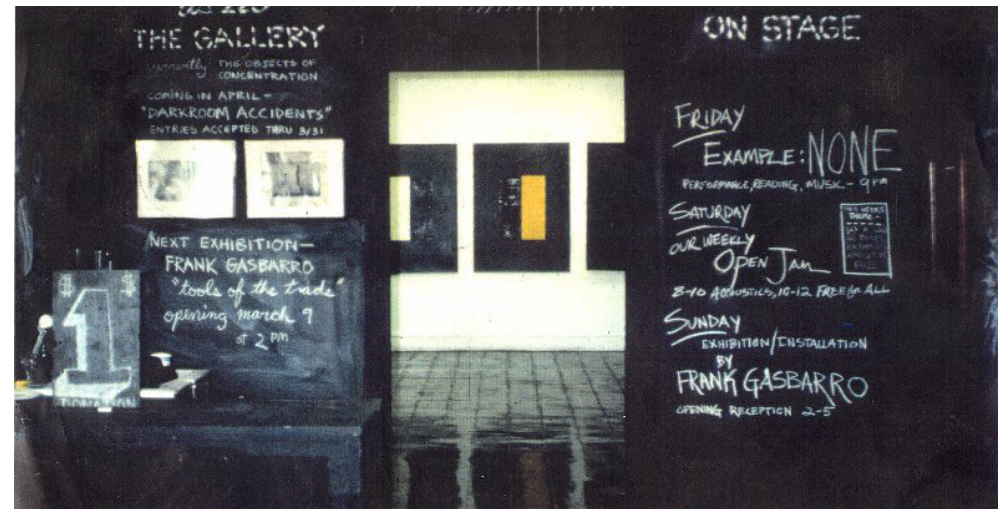 THE GALLERY
currently: THE OBJECTS OF
CONCENTRATION
COMING IN APRIL –
"DARKROOM ACCIDENTS"
ENTRIES ACCEPTED THRU 3/31
NEXT EXHIBITION—
FRANK GASBARRO
"tools of the trade"
opening march 9
at 2 pm
$ $
1
DONATION
ON STAGE
FRIDAY
EXAMPLE: NONE
PERFORMANCE, READING, MUSIC – 9 PM
SATURDAY
OUR WEEKLY
OPEN JAM
8-10 ACOUSTICS, 10-12 FREE for ALL
THIS WEEKS
THEME –
SUNDAY
EXHIBITION/INSTALLATION
BY
FRANK GASBARRO
OPENING RECEPTION 2-5